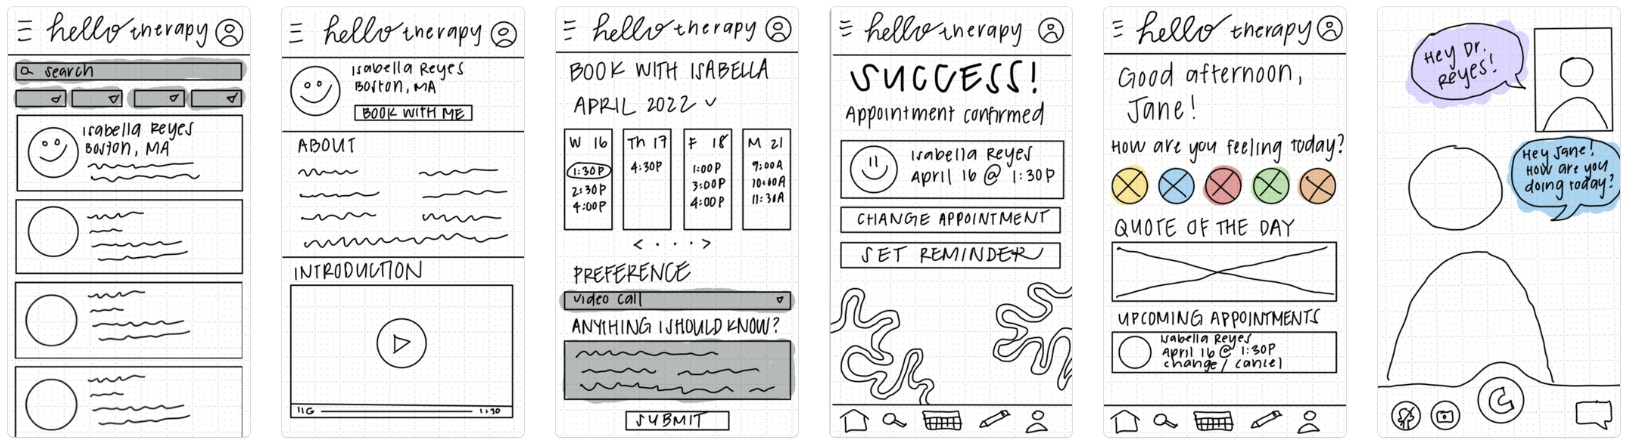 hello therapy
search
Isabella Reyes
Boston, MA
hello therapy
Isabella Reyes
Boston, MA
BOOK WITH ME
ABOUT
INTRODUCTION
1:30
hello therapy
BOOK WITH ISABELLA
APRIL 2022
W 16
1:30P
2:30P
4:00P
Th 17
4:30P
F 18
1:00P
3:00P
4:00P
M 21
9:00A
10:00A
11:30A
< . . . . >
PREFERENCE
video call
ANYTHING I SHOULD KNOW?
SUBMIT
hello therapy
SUCCESS!
Appointment confirmed
Isabella Reyes
April 16 @ 1:30P
CHANGE APPOINTMENT
SET REMINDER
hello therapy
Good afternoon,
Jane!
How are you feeling today?
QUOTE OF THE DAY
UPCOMING APPOINTMENTS
Isabella Reyes
April 16 @ 1:30P
change/ cancel
Hey Dr.
Reyes!
Hey Jane!
How are you
doing today?